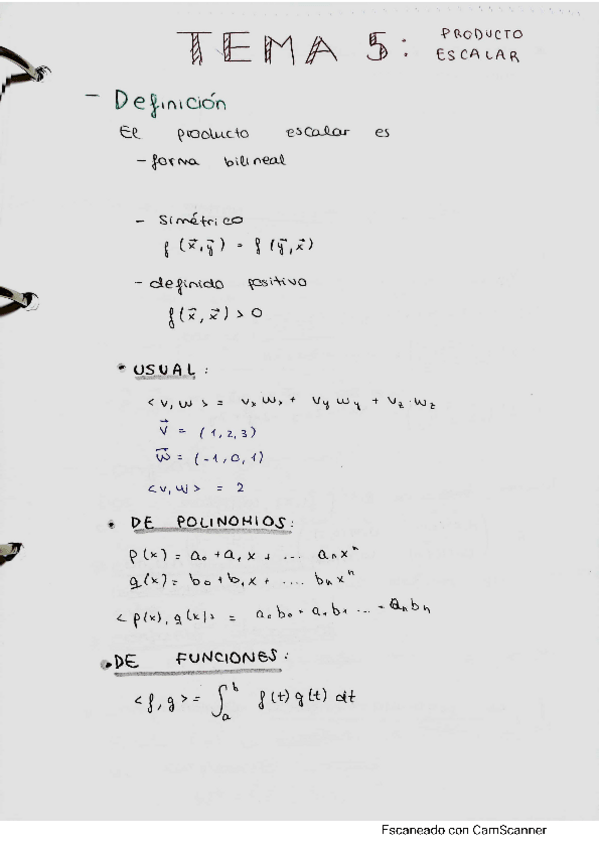 TEMA 5: PRODUCTO
ESCALAR
- Definición
El producto escalar es
- forma bilineal
- simétrico
f(x⃗,y⃗) = f(y⃗,x⃗)
- definido positivo
f(x⃗,x⃗) > 0
• USUAL:
<v,w> = vₓwₓ + vᵧwᵧ + v_z·w_z
v⃗ = (1,2,3)
w⃗ = (-1,0,1)
<v,w> = 2
• DE POLINOMIOS:
p(x) = a₀ + a₁x + ... aₙxⁿ
q(x) = b₀ + b₁x + .... bₙxⁿ
<p(x), q(x)> = a₀b₀ + a₁b₁ ... + aₙbₙ
• DE FUNCIONES:
<f,g> = ∫ₐᵇ f(t)g(t) dt
Escaneado con CamScanner